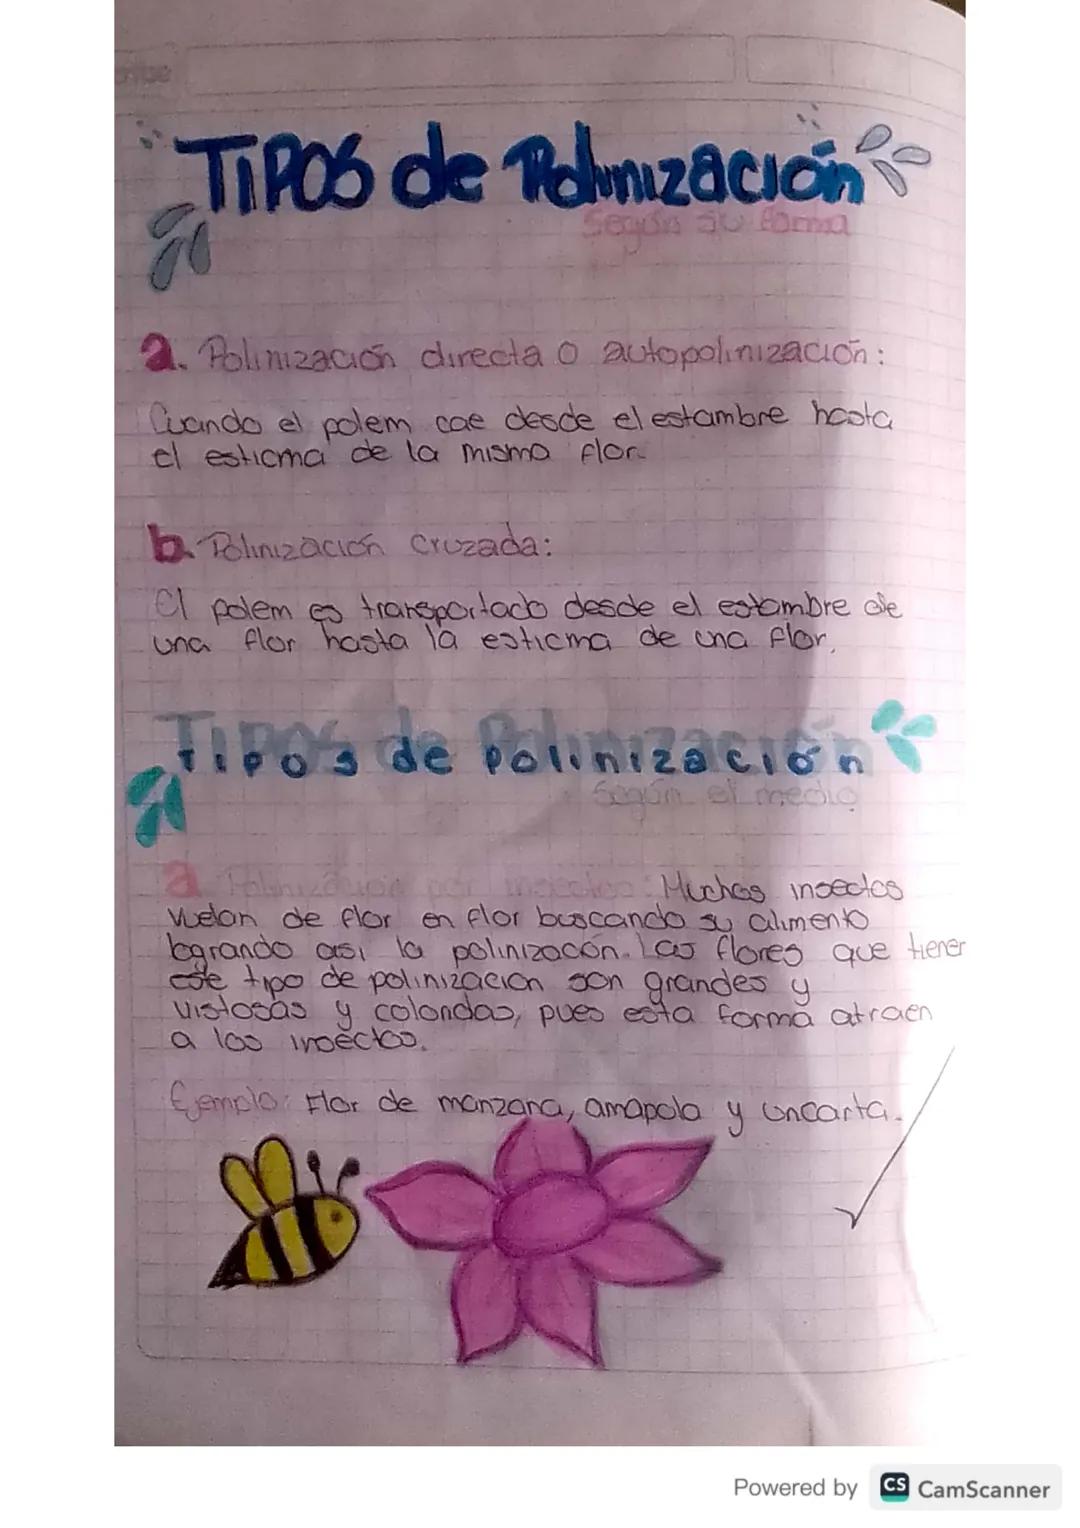 TIPOS de Polinización
Según su forma
a. Polinización directa o autopolinización:
Cuando el polem cae desde el estambre hasta
el esticma de la misma flor.
b. Polinización cruzada:
El polem es transportado desde el estambre de
una flor hasta la esticma de una flor.
Tipos de polinización
Según el medio
a. Polinización por insectos: Muchos insectos
vuelan de flor en flor buscando su alimento
logrando asi la polinizacón. Las flores que tienen
este tipo de polinización son grandes y
vistosas y coloridas, pues esta forma atraen
a los insectos.
Ejemplo: Flor de manzana, amapola y
Powered by CS CamScanner